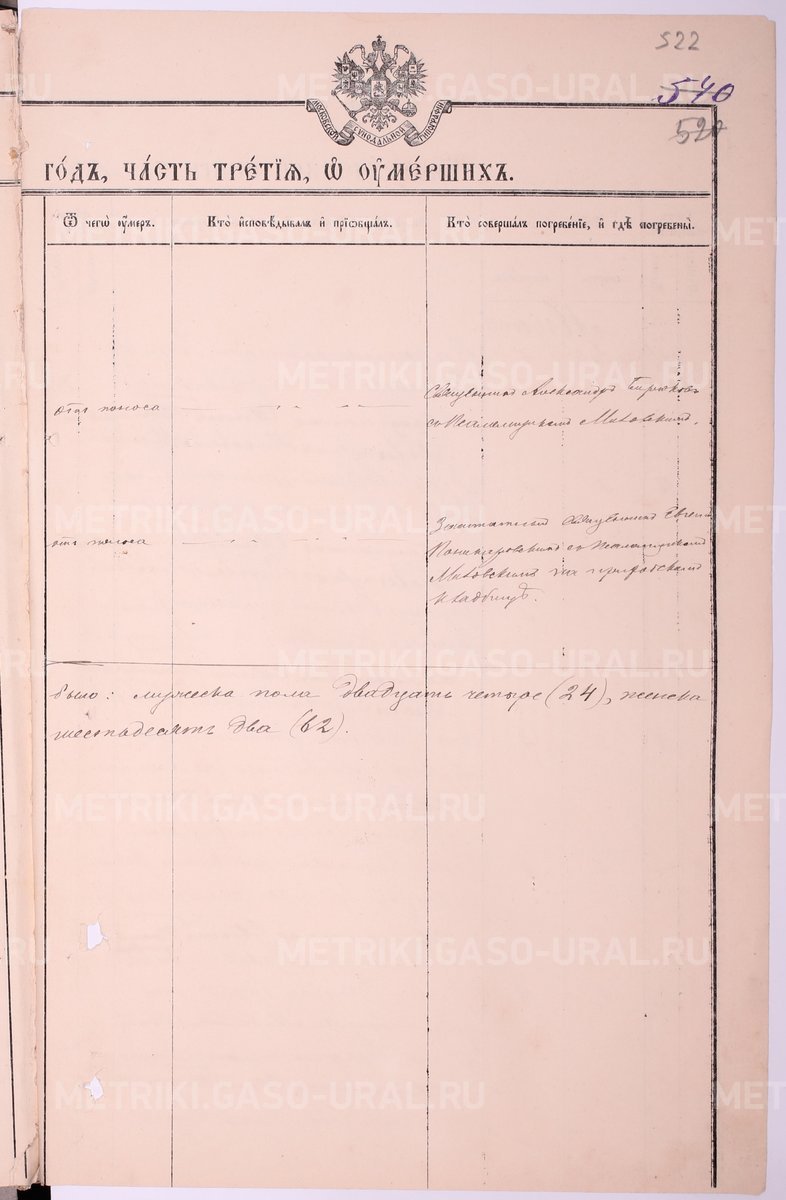 522
540
520
МОСКОВСКОЙ СѴНОДАЛЬНОЙ ТИПОГРАФІИ
ГО́ДЪ, ЧА́СТЬ ТРЕ́ТІѦ, Ѡ҆ ОУ҆МЕ́РШИХЪ.
Ѿ чегѡ̀ оу҆́меръ.
Кто̀ и҆сповѣ́дывалъ и҆ прїѡбща́лъ.
Кто̀ соверша́лъ погребе́нїе, и҆ гдѣ̀ погребены̀.
отъ поноса
Священникъ Александръ Бирюковъ
съ Псаломщикомъ Миловскимъ.
отъ поноса
Заштатный Священникъ Евгеній
съ Псаломщикомъ
Миловскимъ на приходскомъ
кладбищѣ.
было: мужеска пола двадцать четыре (24), женска
шестьдесятъ два (62).
METRIKI.GASO-URAL.RU